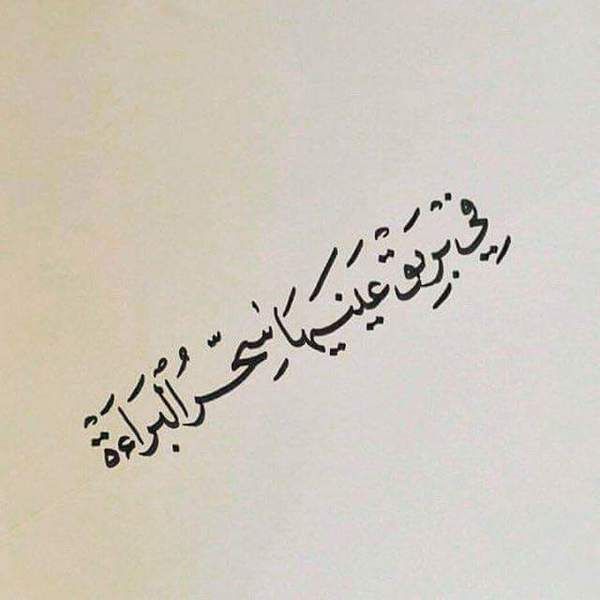 فِي بَرِيقِ عَيْنَيْهَا سِحْرُ الْبَرَاءَةِ